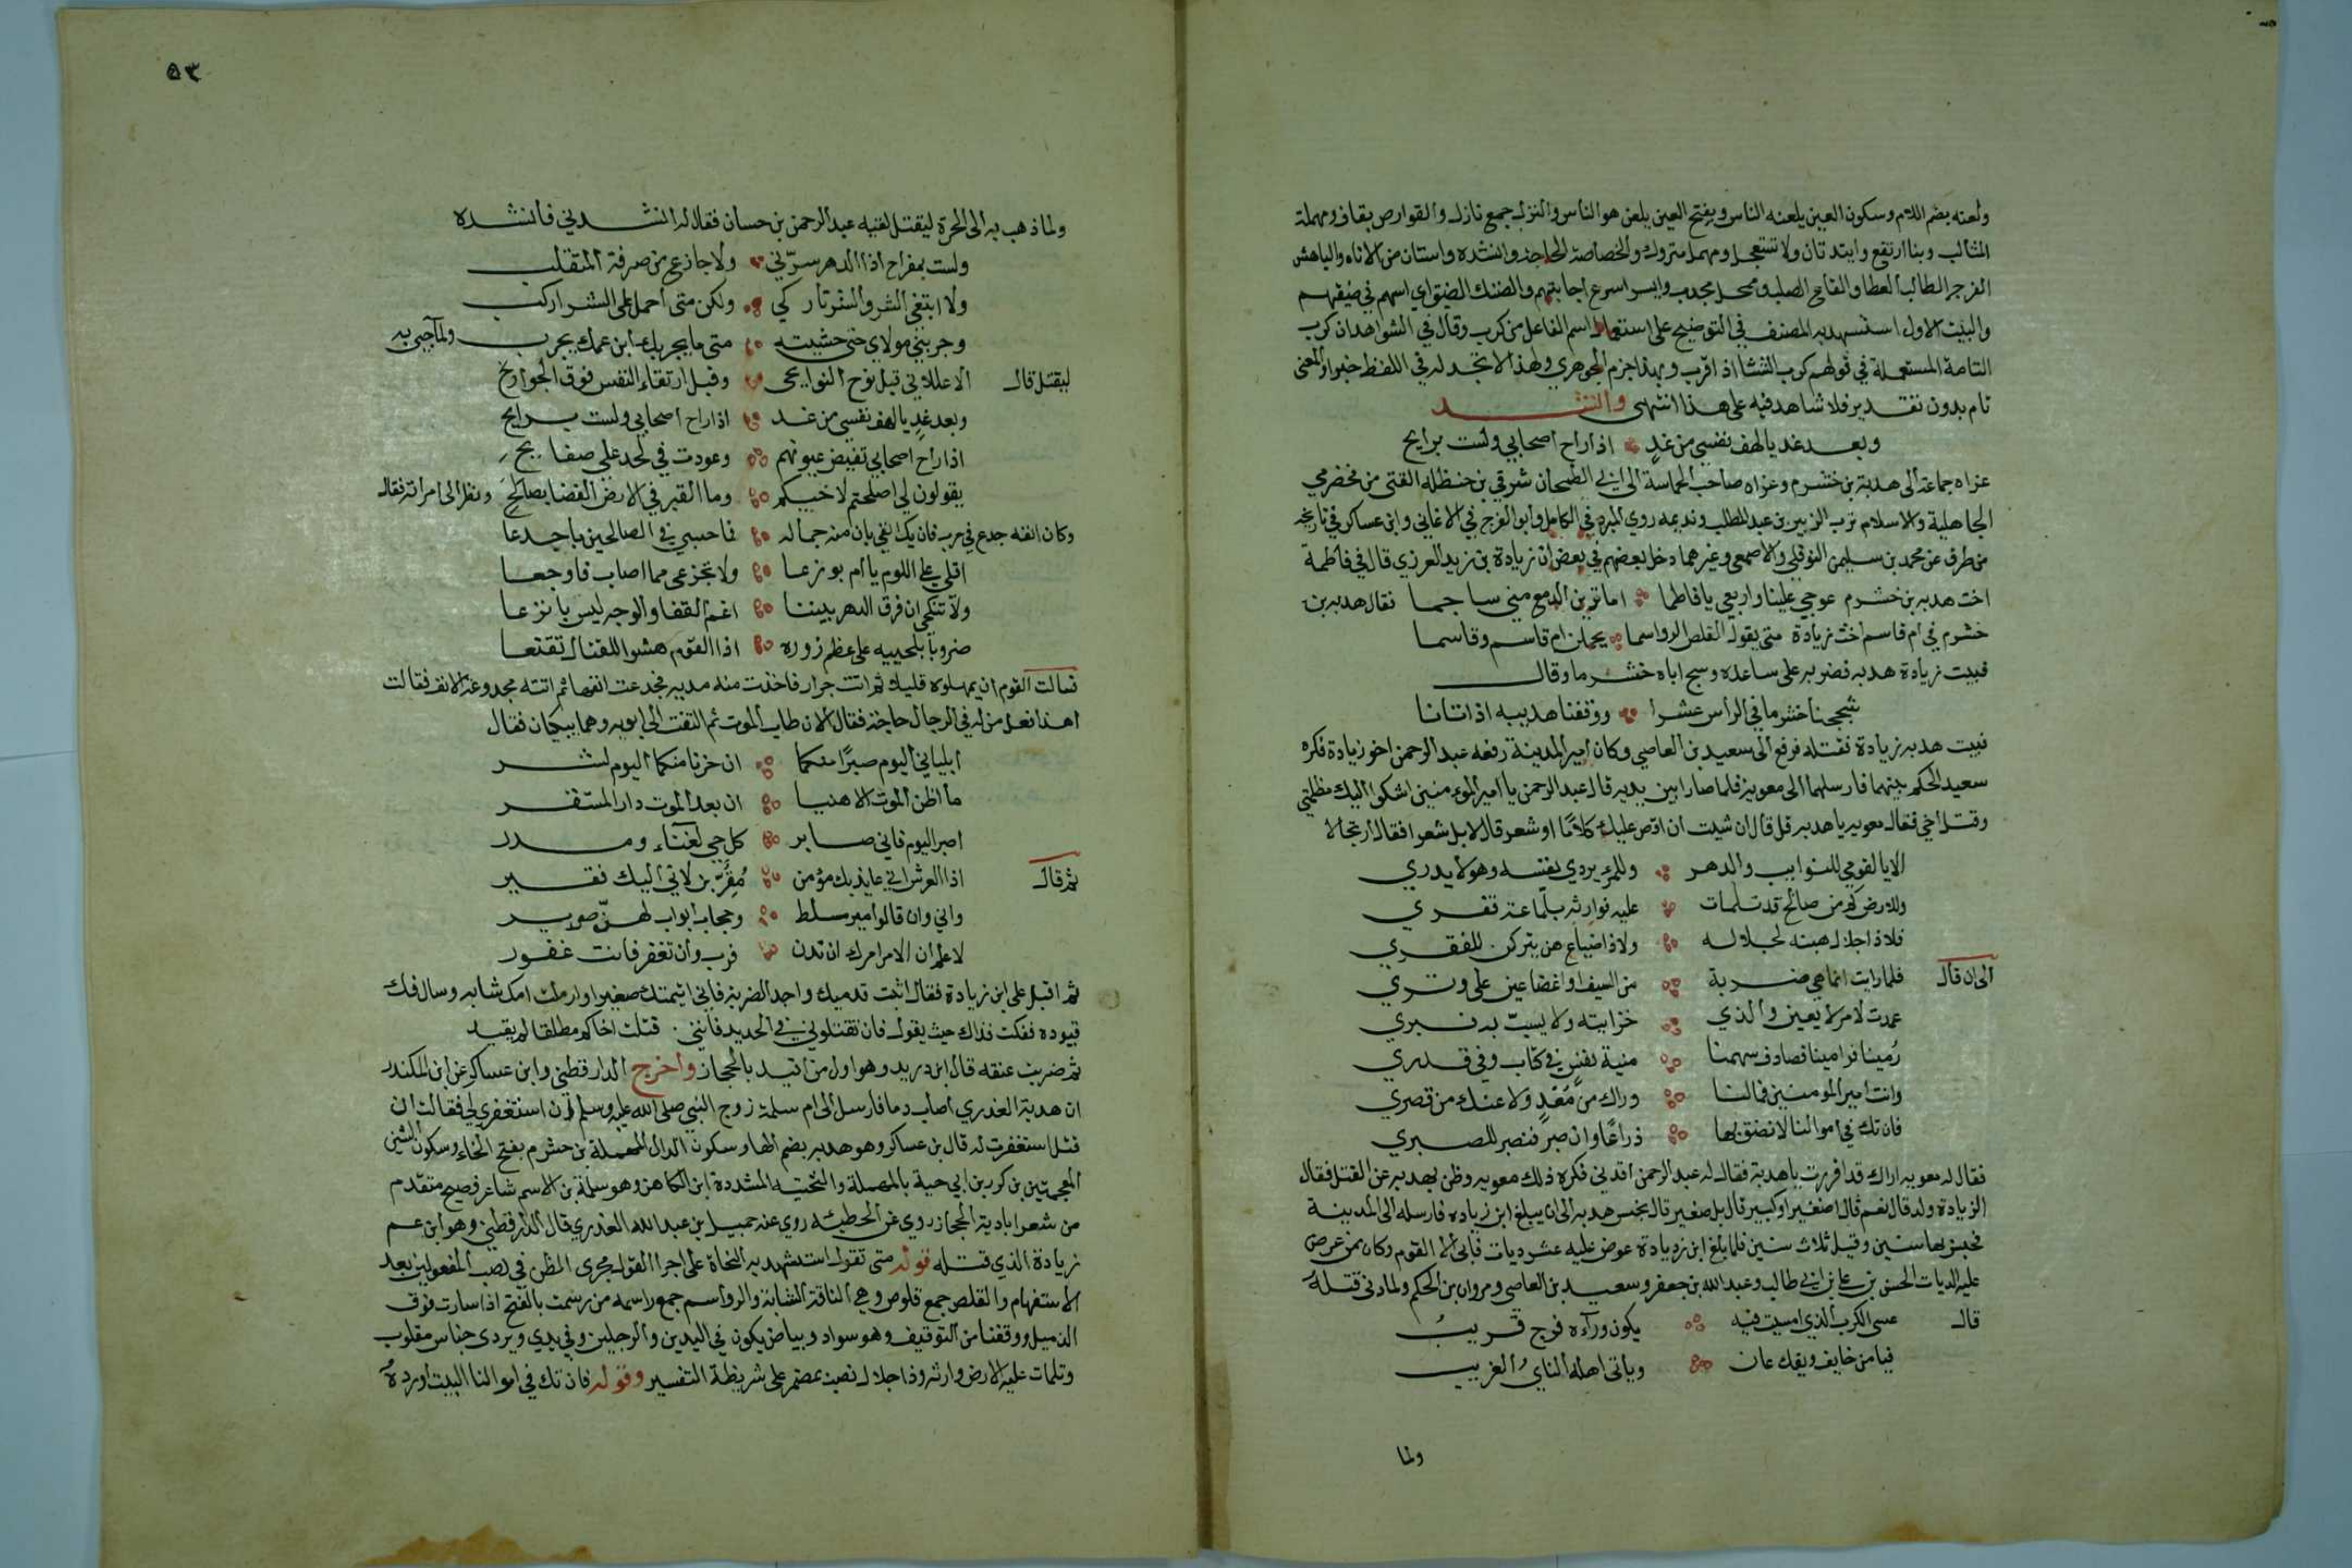 ولعنه بضم اللام وسكون العين يلعنه الناس وبفتح العين يلعن هو الناس والنزل جمع نازل والقوارص بقاف ومهملة
المثالب وبنا ارتفع وابتدتان ولا تستعجل ومهمل متروك والخصاصة الحاجة وانشده واستان من الاناه والباهش
الفرح الطالب العطا والقاع الصلب ومحل مجدب وايسر اسرع اجابتهم والضنك الضيق اي اسهم في ضيقهم
والبيت الاول استشهد به المصنف في التوضيح على استعمال اسم الفاعل من كرب وقال في الشواهد ان كرب
التامة المستعملة في قولهم كرب الشتا اذا قرب وبهذا جزم الجوهري ولهذا لا تجد له في اللفظ خبرا والمعنى
تام بدون تقدير فلا شاهد فيه على هذا انتهى وانشد
وبعد غد يا لهف نفسي من غد اذا راح اصحابي ولست برايح
عزاه جماعة الى هدبة بن خشرم وعزاه صاحب الحماسة الى ابي الطمحان شرقي بن حنظلة القتى من مخضرمي
الجاهلية والاسلام ترب الزبير بن عبد المطلب ونديمه روي المبرد في الكامل وابو الفرج في الاغاني وابن عساكر في تاريخه
من طرق عن محمد بن سليمن النوفلي والاصمعي وغيرهما دخل بعضهم في بعض ان زيادة بن زيد العرزي قال في فاطمة
اخت هدبه بن خشرم عوجي علينا واربعي يا فاطما اما ترين الدمع مني ساجما فقال هدبه بن
خشرم في ام قاسم اخت زيادة متى يقول القلص الرواسما يحملن ام قاسم وقاسما
فبيت زيادة هدبه فضربه على ساعده وسج اباه خشرما وقال
شججنا خشرما في الراس عشرا ووقفنا هديبه اذ اتانا
فبيت هدبه زيادة فقتله فرفع الى سعيد بن العاصي وكان امير المدينة رفعه عبد الرحمن اخو زيادة فكره
سعيد الحكم بينهما فارسلهما الى معوية فلما صارا بين يديه قال عبد الرحمن يا امير المومنين اشكوا اليك مظلمتي
وقتل اخي فقال معويه يا هدبه قل قال ان شيت ان اقص عليك كلاما او شعر قال لا بل شعرا فقال ارتجالا
الا يا لقومي للنوايب والدهر وللمرء يردي نفسه وهو لا يدري
وللارض كم من صالح قد تلمات عليه فوارثه بلماعة قفري
فلا ذا جلال هبنه لجلاله ولا ذا ضياع هن يتركن للفقري
الى ان قال فلما رايت انما هي ضربة من السيف او اغضا عين على وتري
عمدت لامر لا يعير والذي خزايته ولا يسبّ به قبري
رُمينا فرامينا فصادف سهمنا منية نفس في كتاب وفي قدري
وانت امير المومنين فما لنا وراك من مَعْدٍ ولا عنك من قصري
فان تك في اموالنا لا نضق بها ذراعا وان صبر فنصبر للصبري
فقال له معويه اراك قد اقررت يا هدبة فقال له عبد الرحمن اقدني فكره ذلك معويه وظن بهدبه عن القتل فقال
الزيادة ولد قال نعم قال اصغير او كبير قال بل صغير قال يحبس هدبه الى ان يبلغ ابن زياده فارسله الى المدينة
فحبس بها سنين وقيل ثلاث سنين فلما بلغ ابن زيادة عرض عليه عشر ديات فابى الا القوم وكان ممن عرض
عليه الديات الحسن بن علي بن ابي طالب وعبد الله بن جعفر وسعيد بن العاصي ومروان بن الحكم ولما دنى قتله
قال عسى الكرب الذي امسيت فيه يكون ورآءه فرج قريبُ
فيا من خايف ويفك عان وياتي اهله الناي الغريب
ولما
٥٣
ولما ذهب به الى الحرة ليقتل لقيه عبد الرحمن بن حسان فقال له انشدني فانشده
ولست بمفراح اذا الدهر سرّني ولا جازع من صرفه المتقلب
ولا ابتغي الشر والشر تاركي ولكن متى احمل على الشر اركب
وجربني مولاي حتى خشيته متى ما يجربك ابن عمك يجرب ولما جي به
ليقتل قال الا عللاني قبل نوح النوايحي وقبل ارتقاء النفس فوق الجوارح
وبعد غدٍ يا لهف نفسي من غد اذا راح اصحابي ولست برايح
اذا راح اصحابي تفيض عيونهم وغودرت في لحد علي صفايح
يقولون لي اصلحتم لاخيكم وما القبر في الارض الفضا بصالح ونظر الى امراته فقال
وكان انفه جدع في حرب فان يك انفي بان منه جماله فما حسبي في الصالحين باجدعا
اقلي علي اللوم يا ام بوزعا ولا تجزعي مما اصاب فاوجعا
ولا تنكحي ان فرق الدهر بيننا اغم القفا والوجه ليس بانزعا
ضروبا بلحييه على عظم زوره اذا القوم هشوا للفعال تقنعا
فمالت القوم ان يمهلوه قليلا ثم اتت جزار فاخذت منه مديه فجدعت انفها ثم اتته مجدوعة الانف فقالت
اهذا فعل من له في الرجال حاجة فقال الان طاب الموت ثم التفت الى ابويه وهما يبكيان فقال
ابلياني اليوم صبرًا منكما ان حزنا منكما اليوم لشر
ما اظن الموت الا هنيا ان بعد الموت دار المستقر
اصبرا اليوم فاني صابر كل حي لفناء وسدر
ثم قال اذا العرش اني عايذ بك مؤمن مُقِرٌّ بزلاتي اليك فقير
واني وان قالوا امير مسلط وحجاب ابواب لهنّ صرير
لاعلم ان الامر امرك ان تدن فرب وان تغفر فانت غفور
ثم اقبل على ابن زيادة فقال اثبت قدميك واجد الضربة فاني ايتمتك صغيرا وارملت امك شابه وسال فك
قيوده ففكت فذاك حيث يقول فان تقتلوني في الحديد فانني قتلت اخاكم مطلقا لم يقيد
ثم ضربت عنقه قال ابن دريد وهو اول من اقيد بالحجاز واخرج الدارقطني وابن عساكر عن ابن المكندر
ان هدبة العذري اصاب دما فارسل الى ام سلمة زوج النبي صلى الله عليه وسلم ان استغفري لي فقالت ان
قتل استغفرت له قال بن عساكر وهو هدبه بضم الها وسكون الدال المهملة بن خشرم بفتح الخاء وسكون الشين
المعجمتين بن كرز بن ابي حية بالمهملة والتحتيه المشددة ابن الكاهن وهو سلمة بن الاسم شاعر فصيح متقدم
من شعرا بادية الحجاز روي عن الحطيئه روي عنه جميل بن عبد الله العذري قال الدارقطني وهو ابن عم
زيادة الذي قتله قوله متى تقول استشهد به النحاة على اجرا القول مجرى الظن في نصب المفعولين بعد
الاستفهام والقلص جمع قلوص وهي الناقة الشابة والرواسم جمع راسمه من رسمت بالفتح اذا سارت فوق
الذميل ووقفنا من التوقيف وهو سواد وبياض يكون في اليدين والرجلين وفي يدي ويردي جناس مقلوب
وتلمات عليه الارض وارثه وذا جلال نصبت بمضمر على شريطة التفسير وقوله فان تك في اموالنا البيت اورده